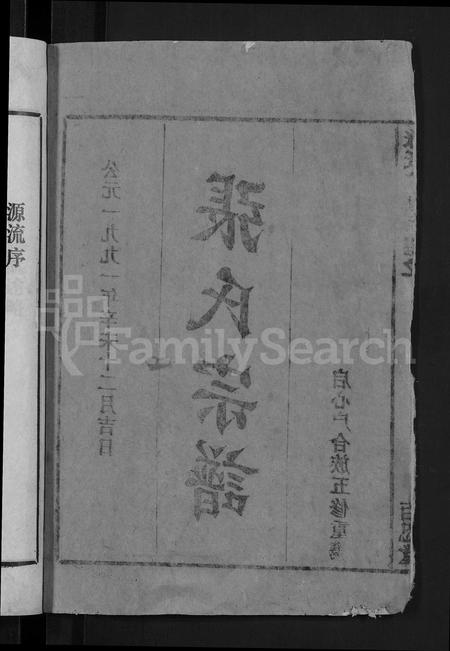 源流序
公元一九九一年辛未十二月吉日
張氏宗譜
启心户合族五修重
FamilySearch